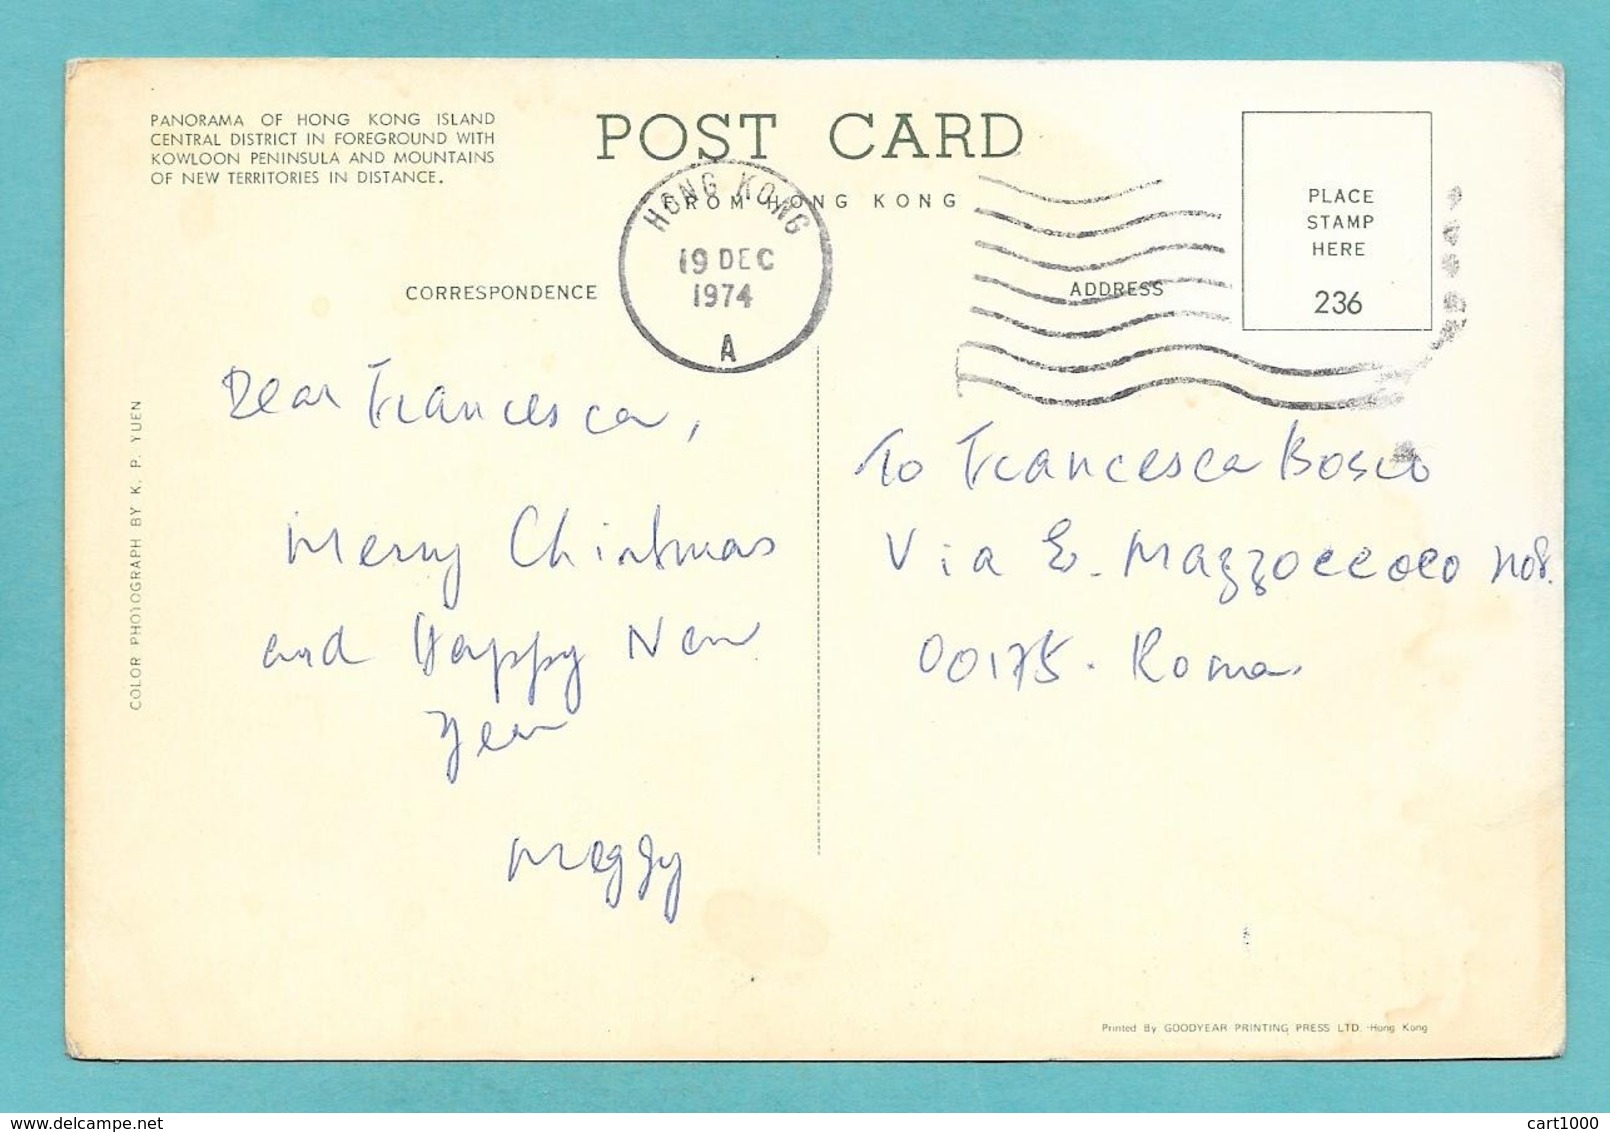 PANORAMA OF HONG KONG ISLAND
CENTRAL DISTRICT IN FOREGROUND WITH
KOWLOON PENINSULA AND MOUNTAINS
OF NEW TERRITORIES IN DISTANCE.
POST CARD
FROM HONG KONG
HONG KONG
19 DEC
1974
A
PLACE
STAMP
HERE
236
CORRESPONDENCE
ADDRESS
COLOR PHOTOGRAPH BY K. P. YUEN
Dear Francesca,
Merry Christmas
and Happy New
Year
Meggy
To Francesca Bosco
Via E. Mazzoccolo
00175. Roma
Printed By GOODYEAR PRINTING PRESS LTD. Hong Kong
www.delcampe.net
cart1000